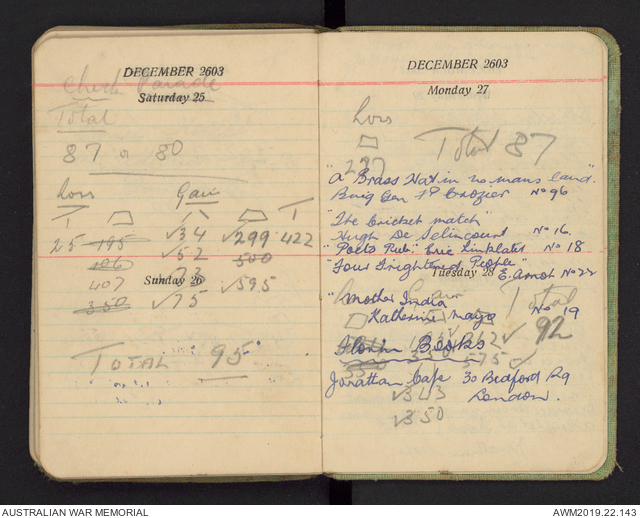 DECEMBER 2603
Check Parade
Saturday 25
Total
87 or 80
Loss Gain
25 195 √34 √299 422
106 √52 500
407 73 √595
Sunday 26
350 √75
TOTAL 95
DECEMBER 2603
Monday 27
Loss
Total 87
297
"A Brass Hat in no mans land".
Brig Gen F P Crozier No 96
"The Cricket match"
Hugh De Selincourt No 16.
"Poets Pub". Eric Linklater No 18
"Four Frightened People"
E. Arnot No 22
Tuesday 28
"Mother India Total
Katherine Mayo No 19
92
Florin Books
575 √
Jonathan Cape 30 Bedford Sq
London.
√343
√350
AUSTRALIAN WAR MEMORIAL
AWM2019.22.143